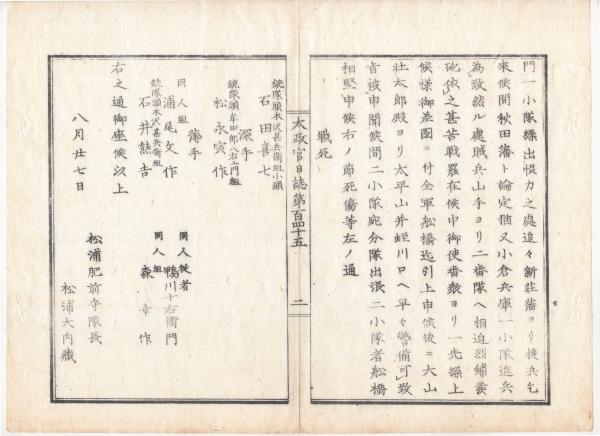 門一小隊繰出惧力之處追々新荘藩ヨリ援兵乞
來候間秋田藩ト論定猶又小倉兵庫一小隊進兵
為致然ル處賊兵山手ヨリ二番隊ヘ相迫烈鋪発
砲依之甚苦戦罷在候中御使番数ヨリ一先繰上
候様御差図ニ付全軍舩橋迄引上申候後ニ大山
壮太郎殿ヨリ太平山井蛭川口ヘ早々警備可致
旨被申聞候間二小隊宛分隊出張二小隊者舩橋
相堅申候右ノ節死傷等左ノ通
戦死
太政官日誌第百四十五
二
銃隊頭米沢甚兵衛組小頭
石田喜七
深手
銃隊頭牟田部八右エ門組
松永寅作
薄手
同人組
浦尾文作
銃隊頭米沢甚兵衛組
石井熊吉
同人従者
鴨川十右衛門
同人組
森幸作
右之通御座候以上
八月廿七日
松浦肥前守隊長
松浦大内蔵